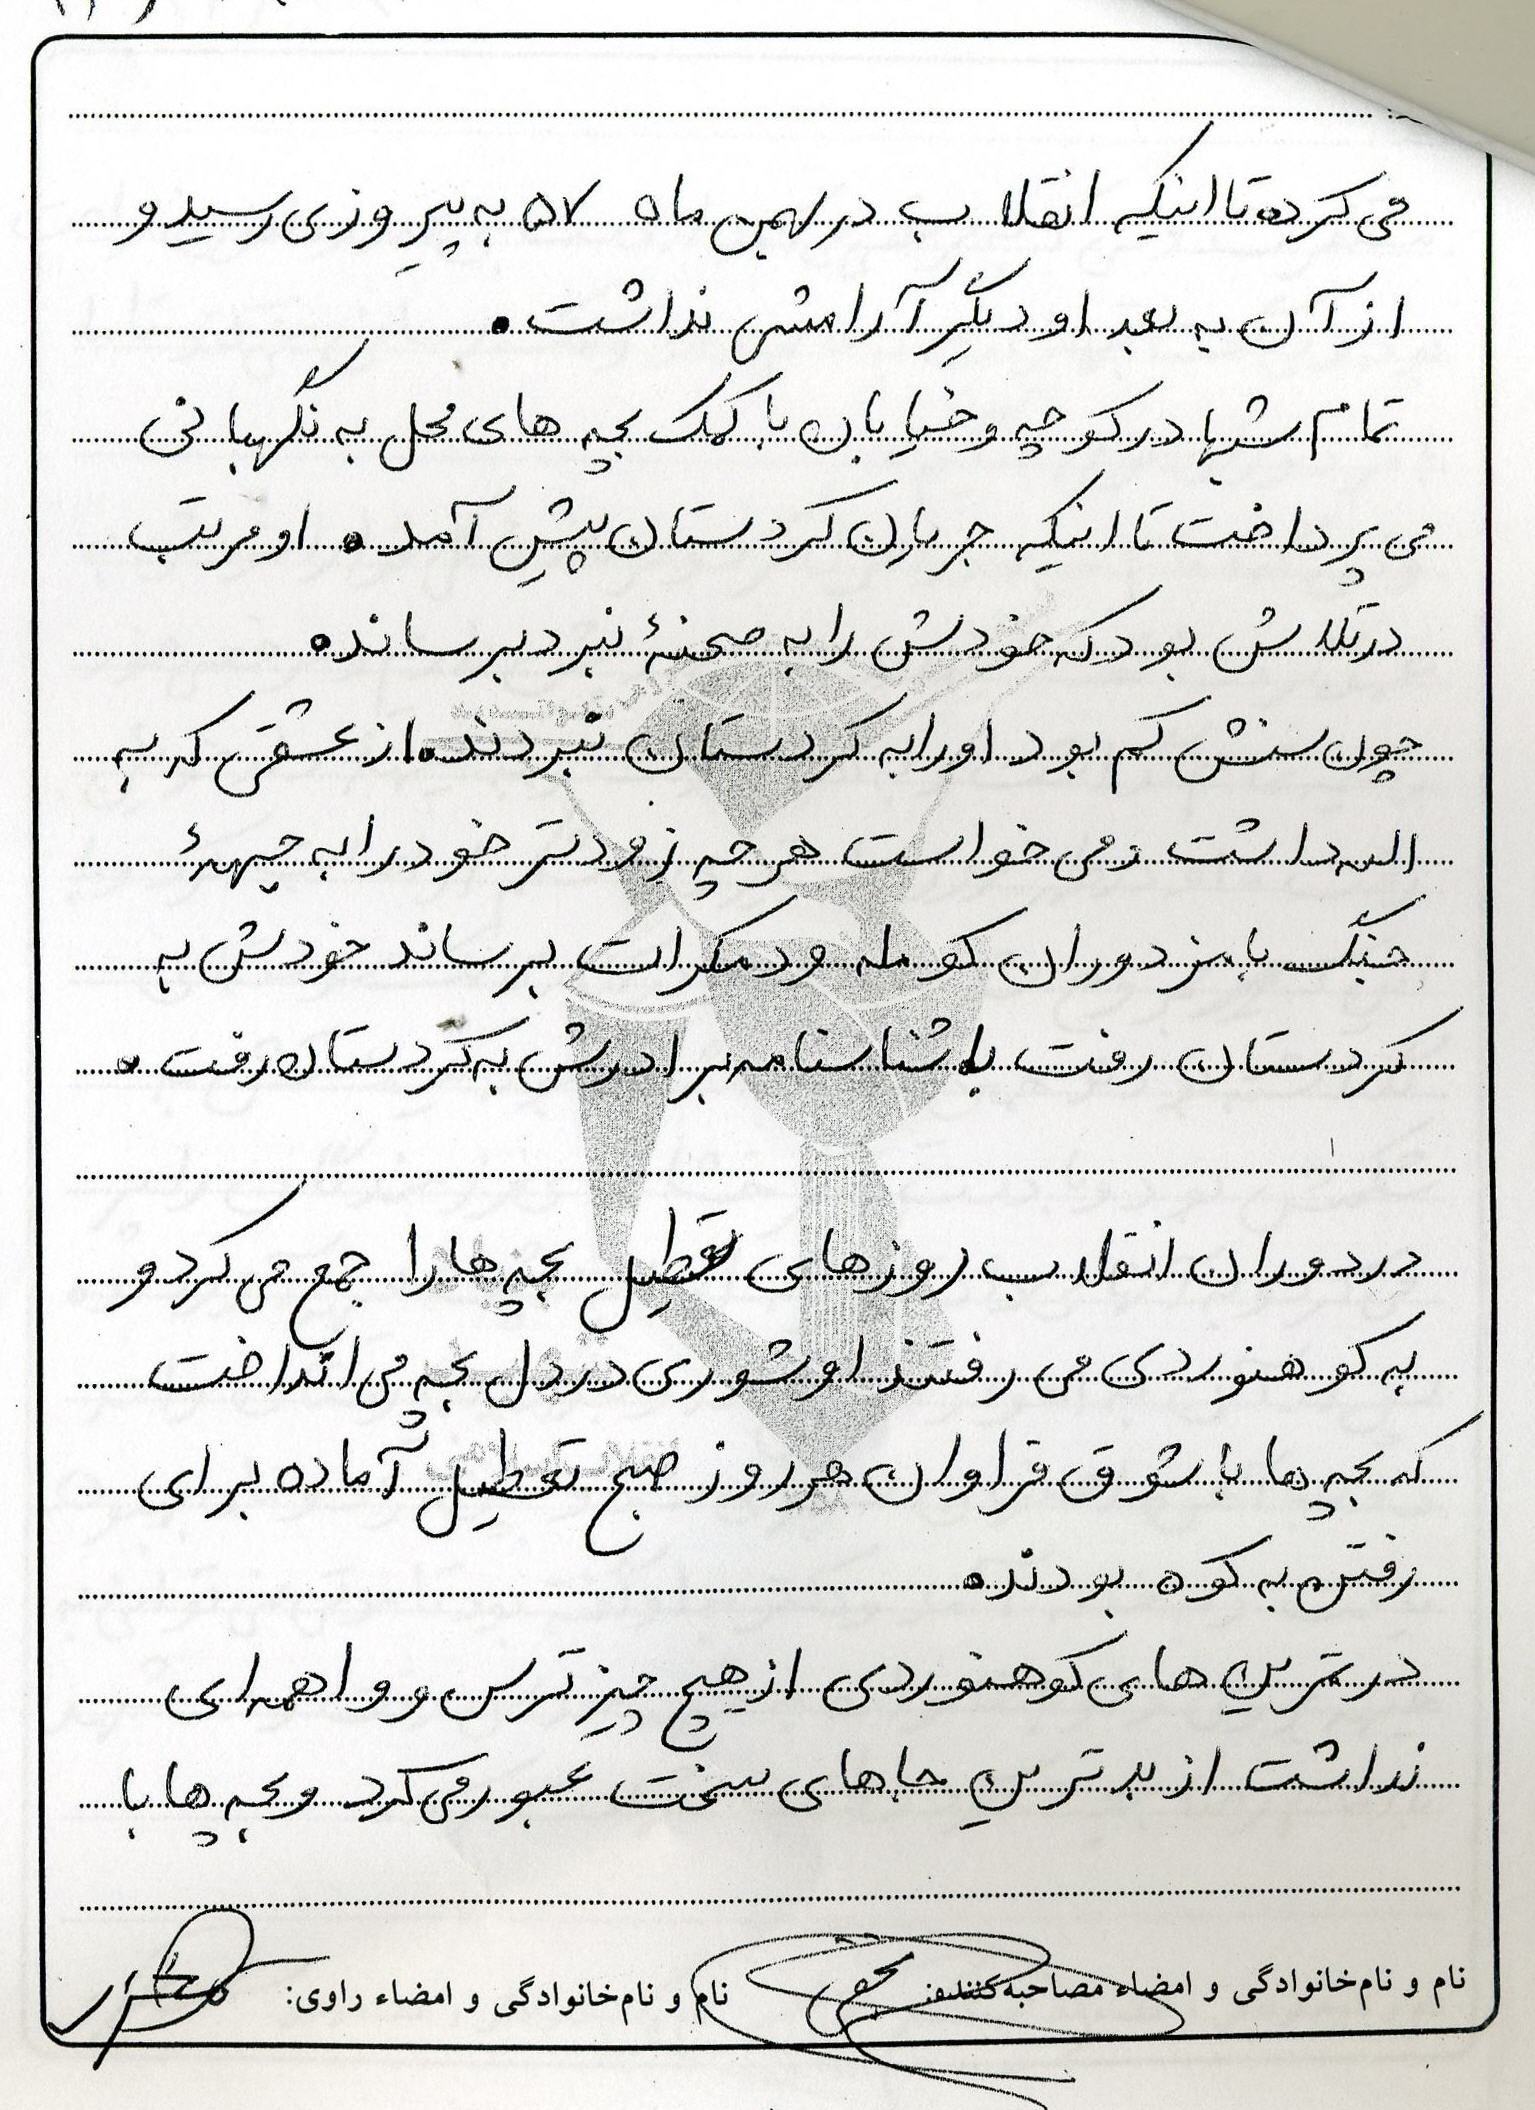 می کرد تا اینکه انقلاب در بهمن ماه ۵۷ به پیروزی رسید و
از آن به بعد او دیگر آرامش نداشت.
تمام شبها در کوچه و خیابان با کمک بچه های محل به نگهبانی
می پرداخت تا اینکه جریان کردستان پیش آمد. او مرتب
در تلاش بود که خودش را به صحنهٔ نبرد برساند.
چون سنش کم بود او را به کردستان نبردند. از عشقی که به
اله داشت و می خواست هر چه زودتر خود را به جبههٔ
جنگ با مزدوران کومله و دمکرات برساند خودش به
کردستان رفت با شناسنامه برادرش به کردستان رفت.
در دوران انقلاب روزهای تعطیل بچه ها را جمع می کرد و
به کوهنوردی می رفتند او شوری در دل بچه می انداخت
که بچه ها با شوق فراوان هر روز صبح تعطیل آماده برای
رفتن به کوه بودند.
در تمرین های کوهنوردی از هیچ چیز ترس و واهمه ای
نداشت از بدترین جاهای سخت عبور می کرد و بچه ها با
نام و نام‌خانوادگی و امضاء مصاحبه‌کننده: نام و نام‌خانوادگی و امضاء راوی: